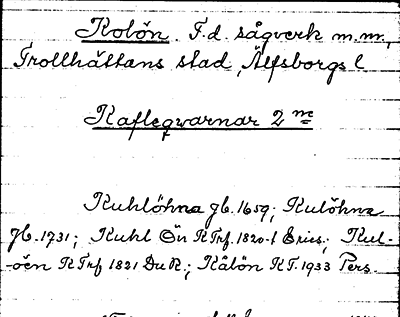 Kolön. F.d. sågverk m.m.,
Trollhättans stad, Älfsborgs l
Kafleqvarnar 2 m
Kuhlöhna gb. 1659; Kulöhna
gb. 1731; Kuhl Ön RTrf. 1820-1 Erics; Kul-
-öen RTrf 1821 DuR.; Kålön RT. 1933 Pers.